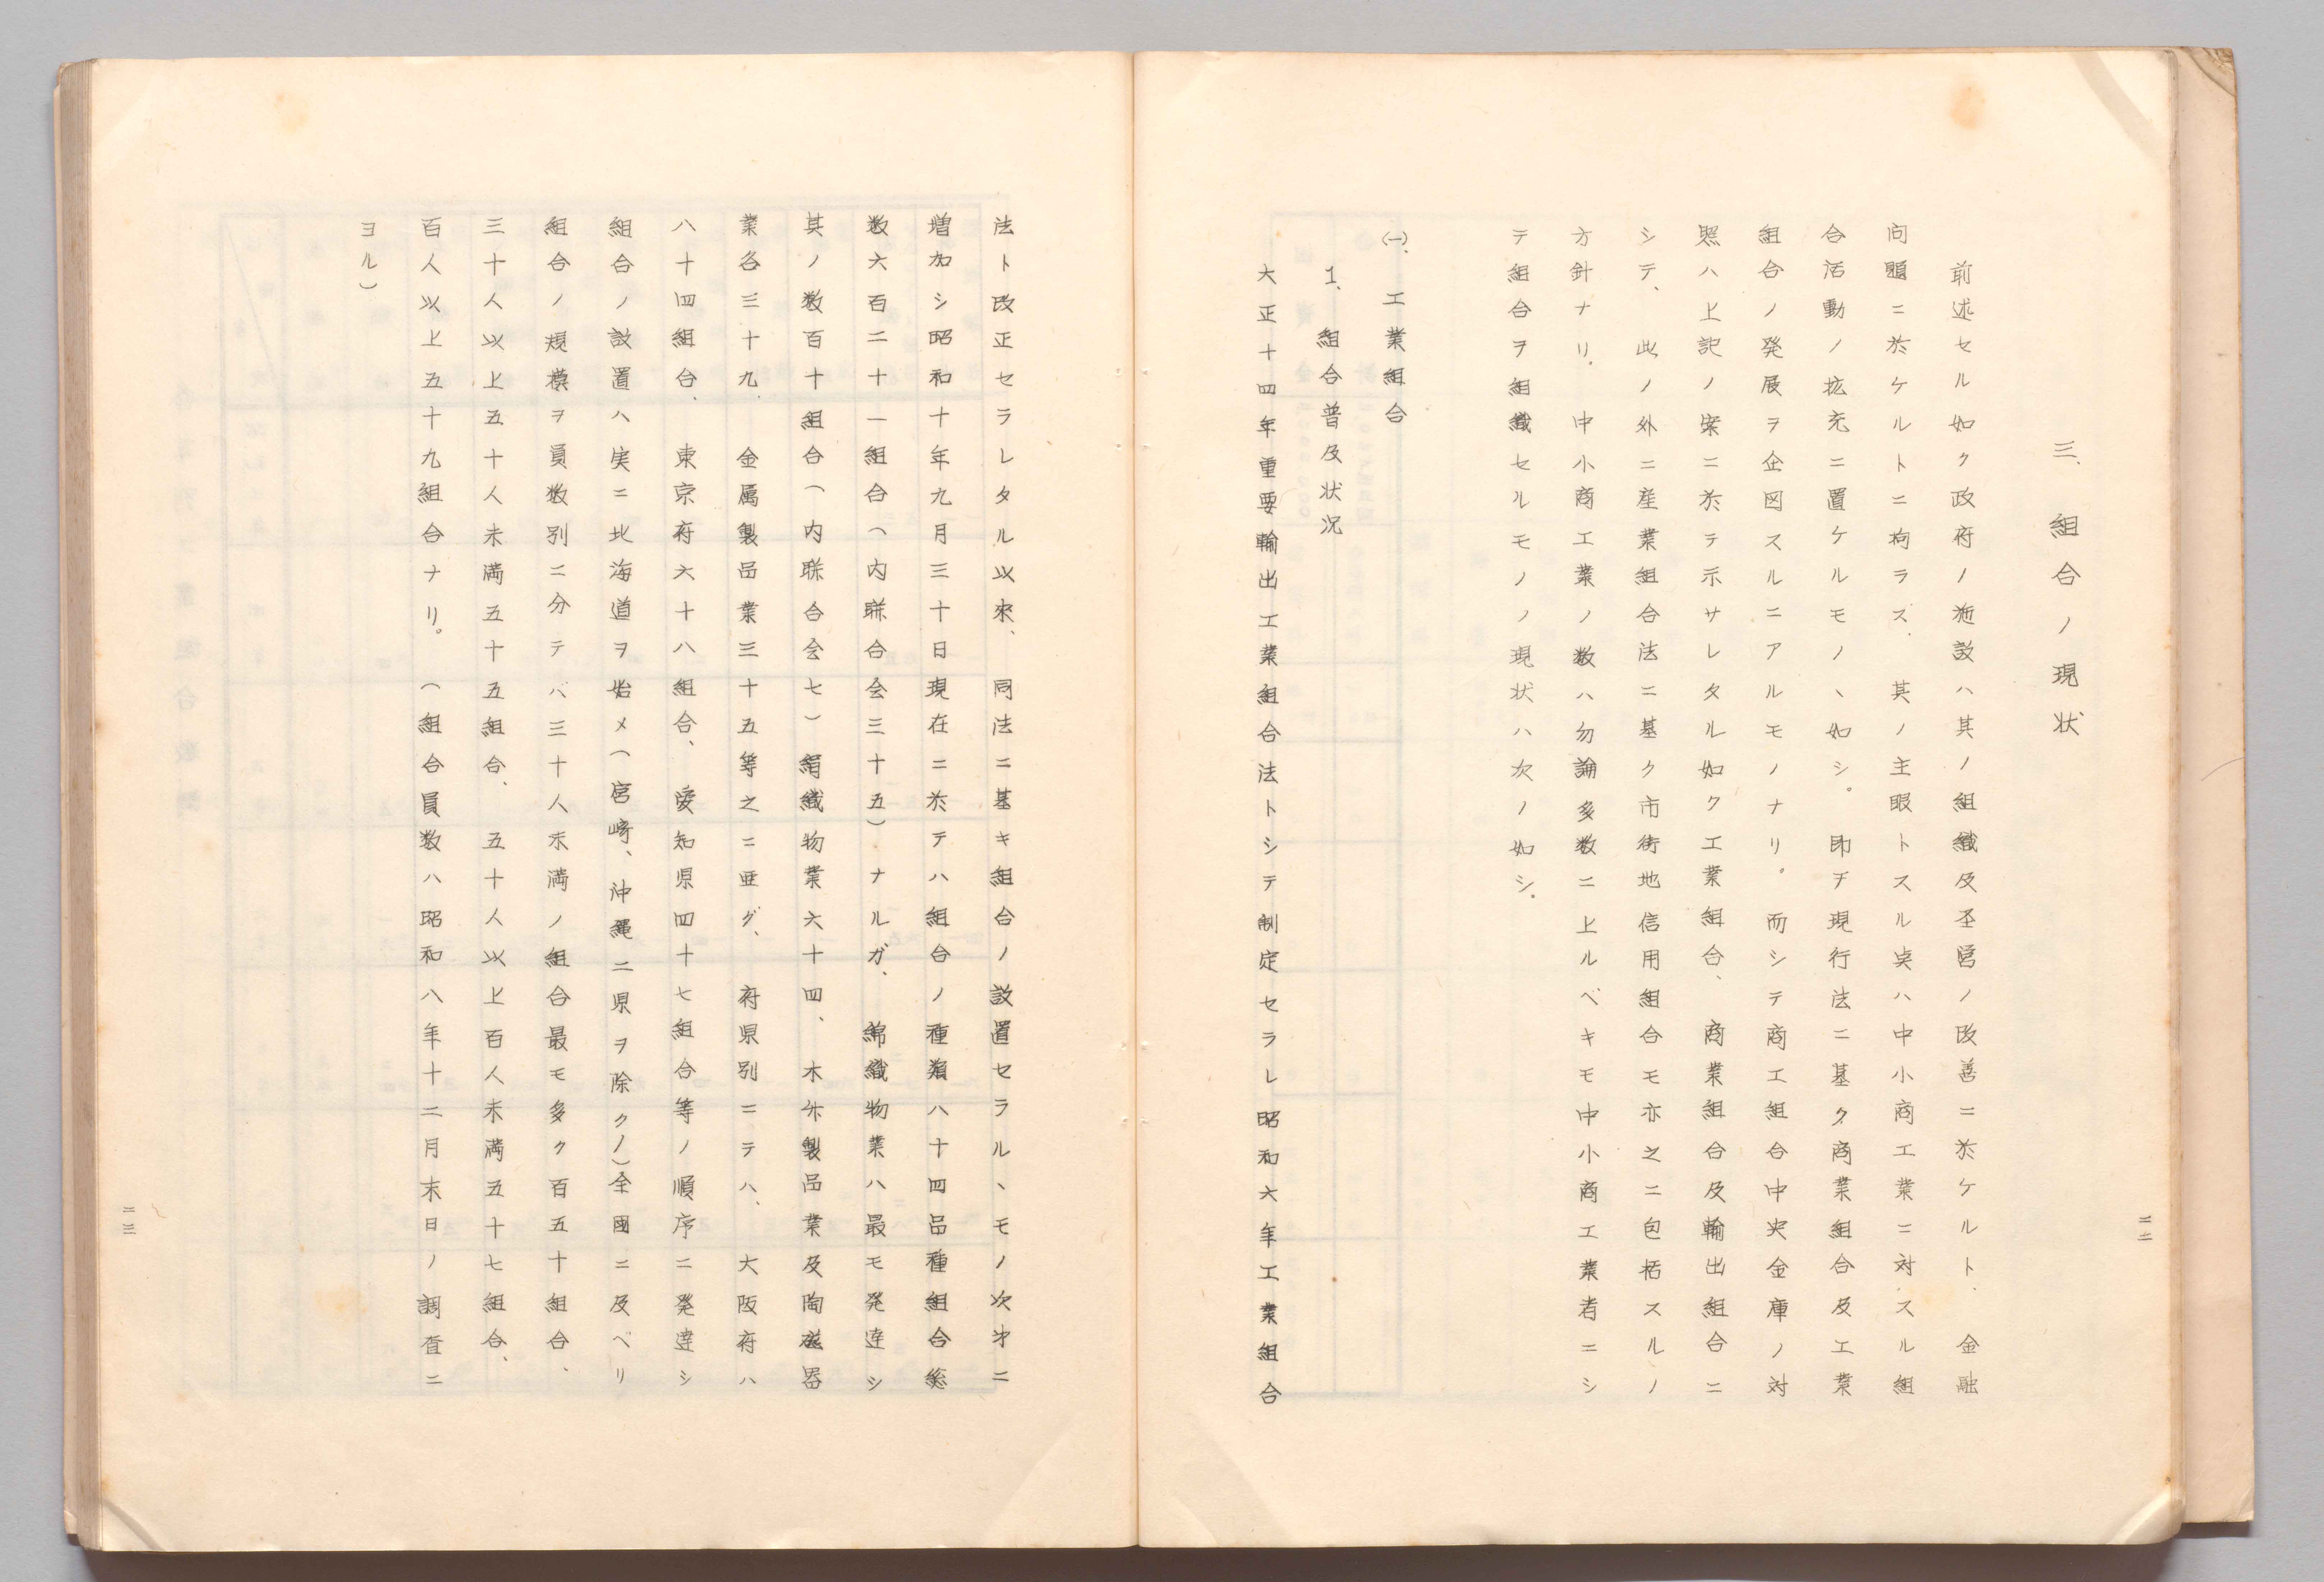 三、組合ノ現状
前述セル如ク政府ノ施設ハ其ノ組織及圣営ノ改善ニ於ケルト、金融
問題ニ於ケルトニ拘ラス、其ノ主眼トスル点ハ中小商工業ニ対スル組
合活動ノ拡充ニ置ケルモノヽ如シ。即チ現行法ニ基ク商業組合及工業
組合ノ発展ヲ企図スルニアルモノナリ。而シテ商工組合中央金庫ノ対
照ハ上記ノ案ニ於ラ示サレタル如ク工業組合、商業組合及輸出組合ニ
シテ、此ノ外ニ産業組合法ニ基ク市街地信用組合モ亦之ニ包括スルノ
方針ナリ。中小商工業ノ数ハ勿論多数ニ上ルベキモ中小商工業者ニシ
テ組合ヲ組織セルモノノ現状ハ次ノ如シ。
㈠、工業組合
1、組合普及状況
大正十四年重要輸出工業組合法トシテ制定セラレ昭和六年工業組合
二二
法ト改正セラレタル以来、同法ニ基キ組合ノ設置セラルヽモノ次才ニ
増加シ昭和十年九月三十日現在ニ於テハ組合ノ種類八十四品種組合総
数六百二十一組合（内聯合会三十五）ナルガ、綿織物業ハ最モ発達シ
其ノ数百十組合（内聯合会七）絹織物業六十四、木竹製品業及陶磁器
業各三十九、金属製品業三十五等之ニ亜グ、府県別ニテハ、大阪府ハ
八十四組合、東京府六十八組合、愛知県四十七組合等ノ順序ニ発達シ
組合ノ設置ハ実ニ北海道ヲ始メ（宮崎、沖縄二県ヲ除ク）全國ニ及ベリ
組合ノ規模ヲ員数別ニ分テバ三十人未満ノ組合最モ多ク百五十組合、
三十人以上五十人未満五十五組合、五十人以上百人未満五十七組合、
百人以上五十九組合ナリ。（組合員数ハ昭和八年十二月末日ノ調査ニ
ヨル）
二三